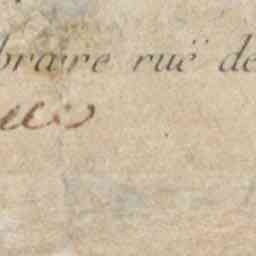 braire ruë de